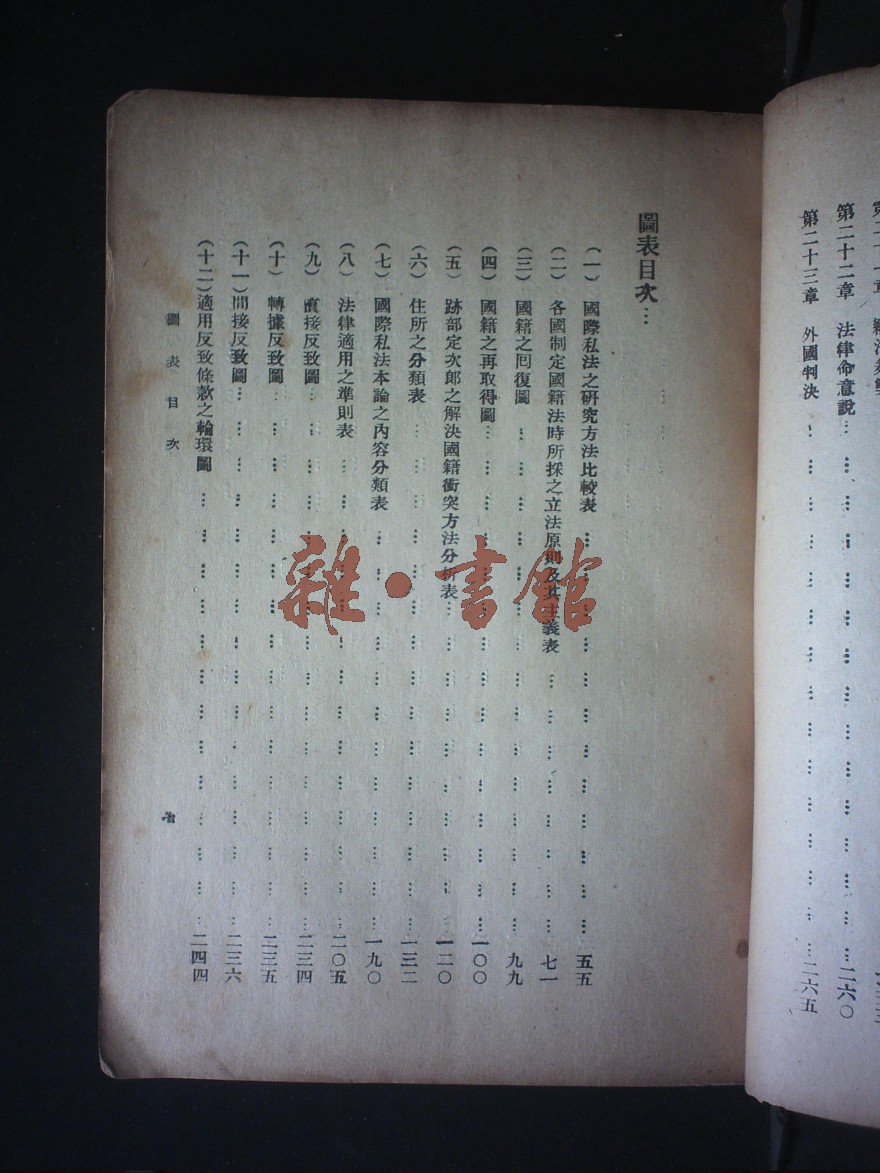 第二十二章 法律命意說 二六〇
第二十三章 外國判決 二六五
圖表目次
(一) 國際私法之研究方法比較表 五五
(二) 各國制定國籍法時所採之立法原則及其主義表 七一
(三) 國籍之囘復圖 九九
(四) 國籍之再取得圖 一〇〇
(五) 跡部定次郎之解決國籍衝突方法分析表 一二〇
(六) 住所之分類表 一三二
(七) 國際私法本論之內容分類表 一九〇
(八) 法律適用之準則表 二〇五
(九) 直接反致圖 二三四
(十) 轉據反致圖 二三五
(十一) 間接反致圖 二三六
(十二) 適用反致條款之輪環圖 二四四
圖表目次
雜·書館